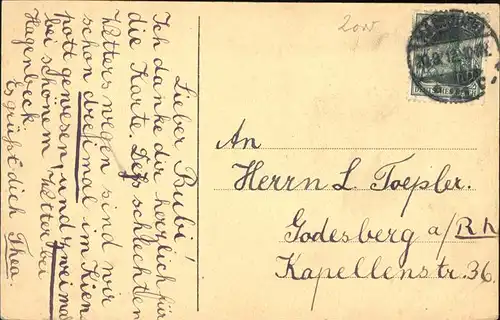 Lieber Bubi!
Ich danke dir herzlich für
die Karte. Des schlechten
Wetters wegen sind wir
schon dreimal im Kien
pott gewesen, und zweimal
bei schönem Wetter bei
Hagenbeck.
Es grüßt dich Thea.
An
Herrn L. Toepler.
Godesberg a/Rh
Kapellenstr. 36.